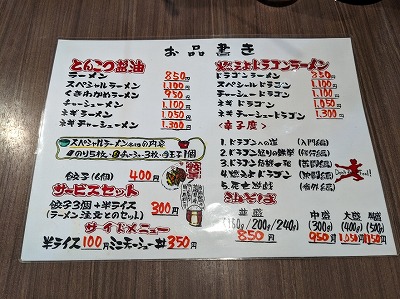 お品書き
とんこつ醤油
ラーメン 850円
スペシャルラーメン 1,100円
くきわかめラーメン 950円
チャーシューメン 1,100円
ネギラーメン 1,050円
ネギチャーシューメン 1,300円
スペシャルラーメンの内容
のり5枚・チャーシュー3枚・味玉子1個
餃子(6個) 400円
サービスセット
餃子3個+半ライス 300円
(ラーメン注文とのセット)
サイドメニュー
半ライス100円 ミニチャーシュー丼350円
燃えよドラゴンラーメン
ドラゴンラーメン 850円
スペシャルドラゴン 1,100円
チャーシュードラゴン 1,100円
ネギドラゴン 1,050円
ネギチャーシュードラゴン 1,300円
<辛さ度>
1.ドラゴンへの道 (入門編)
2.ドラゴン怒りの鉄拳
3.ドラゴン
4.燃えよドラゴン
5.死亡遊戯 (番外編)
つけそば
並盛
(160g/200g/240g)
850円
中盛
(300g)
950円
大盛
(400g)
1,050円
(500g)
1,150円